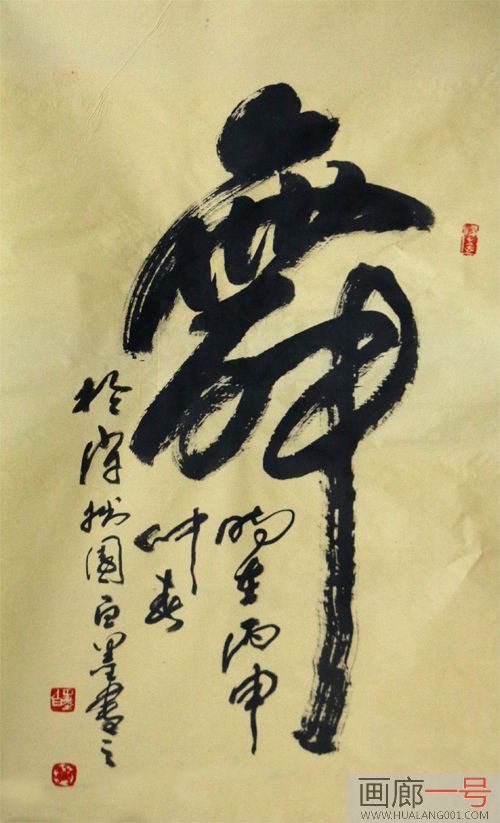 舞
時在丙申
仲春
於園墨書之
画廊一号
WWW.HUALANG001.COM